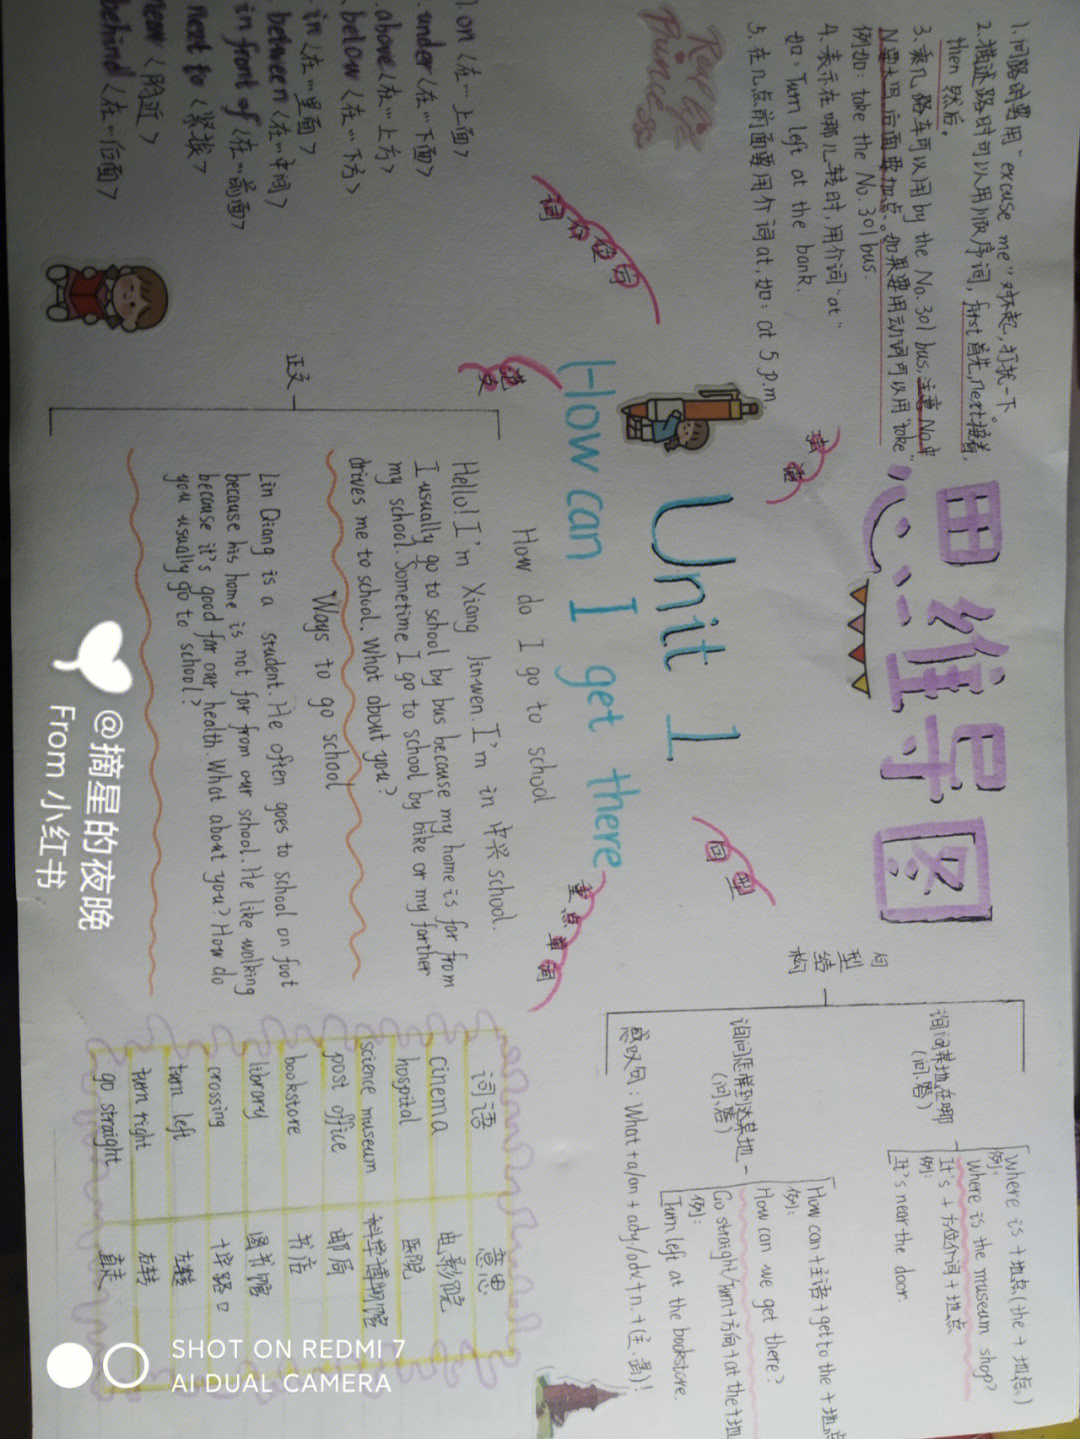 思维导图
Unit 1
How can I get there
1. 问路时要用“excuse me”对不起,打扰一下。
2. 描述路时可以用顺序词, first 首先, next 接着,
then 然后。
3. 乘几路车可以用by the No. 301 bus. 注意 No.中
N要大写, 后面要加点。如果要用动词可以用“take”
例如: take the No. 301 bus.
4. 表示在哪儿转时, 用介词“at”
如: Turn left at the bank.
5. 在几点前面要用介词at, 如: at 5 p.m.
Princess
方位
词
1. on <在…上面>
under <在…下面>
above <在…上方>
below <在…下方>
in <在…里面>
between <在…中间>
in front of <在…前面>
next to <紧挨>
near <附近>
behind <在…后面>
范文
正文
How do I go to school
Hello! I'm Xiang Jinwen. I'm in 中兴 school.
I usually go to school by bus because my home is far from
my school. Sometime I go to school by bike or my farther
drives me to school. What about you?
Ways to go school
Lin Qiang is a student. He often goes to school on foot
because his home is not far from our school. He like walking
because it's good for our health. What about you? How do
you usually go to school?
句型
句型结构
询问某地在哪
(问、答)
Where is + 地点 (the + 地点)
例:
Where is the museum shop?
It's + 方位介词 + 地点
例:
It's near the door.
询问怎样到达某地
(问、答)
How can + 主语 + get to the + 地点
例:
How can we get there?
Go straight/turn + 方向 + at the + 地
例:
Turn left at the bookstore.
感叹句: What + a/an + adj/adv + n. + (主、谓)!
重点单词
词语 意思
cinema 电影院
hospital 医院
science museum 科学博物馆
post office 邮局
bookstore 书店
library 图书馆
crossing 十字路口
turn left 左转
turn right 右转
go straight 直走
@摘星的夜晚
From 小红书
SHOT ON REDMI 7
AI DUAL CAMERA